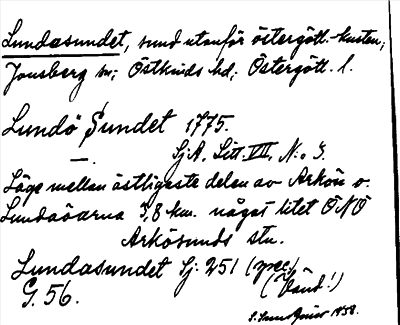 Lundasundet, sund utanför östergötl.-kusten,
Jonsberg sn; Östkinds hd; Östergötl. l.
Lundö Sundet 1775.
—. Sj.A. Litt. VII, N:o 3.
Läge mellan östligaste delen av Arkön o.
Lundaöarna 3,8 km. något litet ONO
Arkösunds stn.
Lundasundet Sj. 251 (spec.)
G. 56. (Vänd!)
1938.